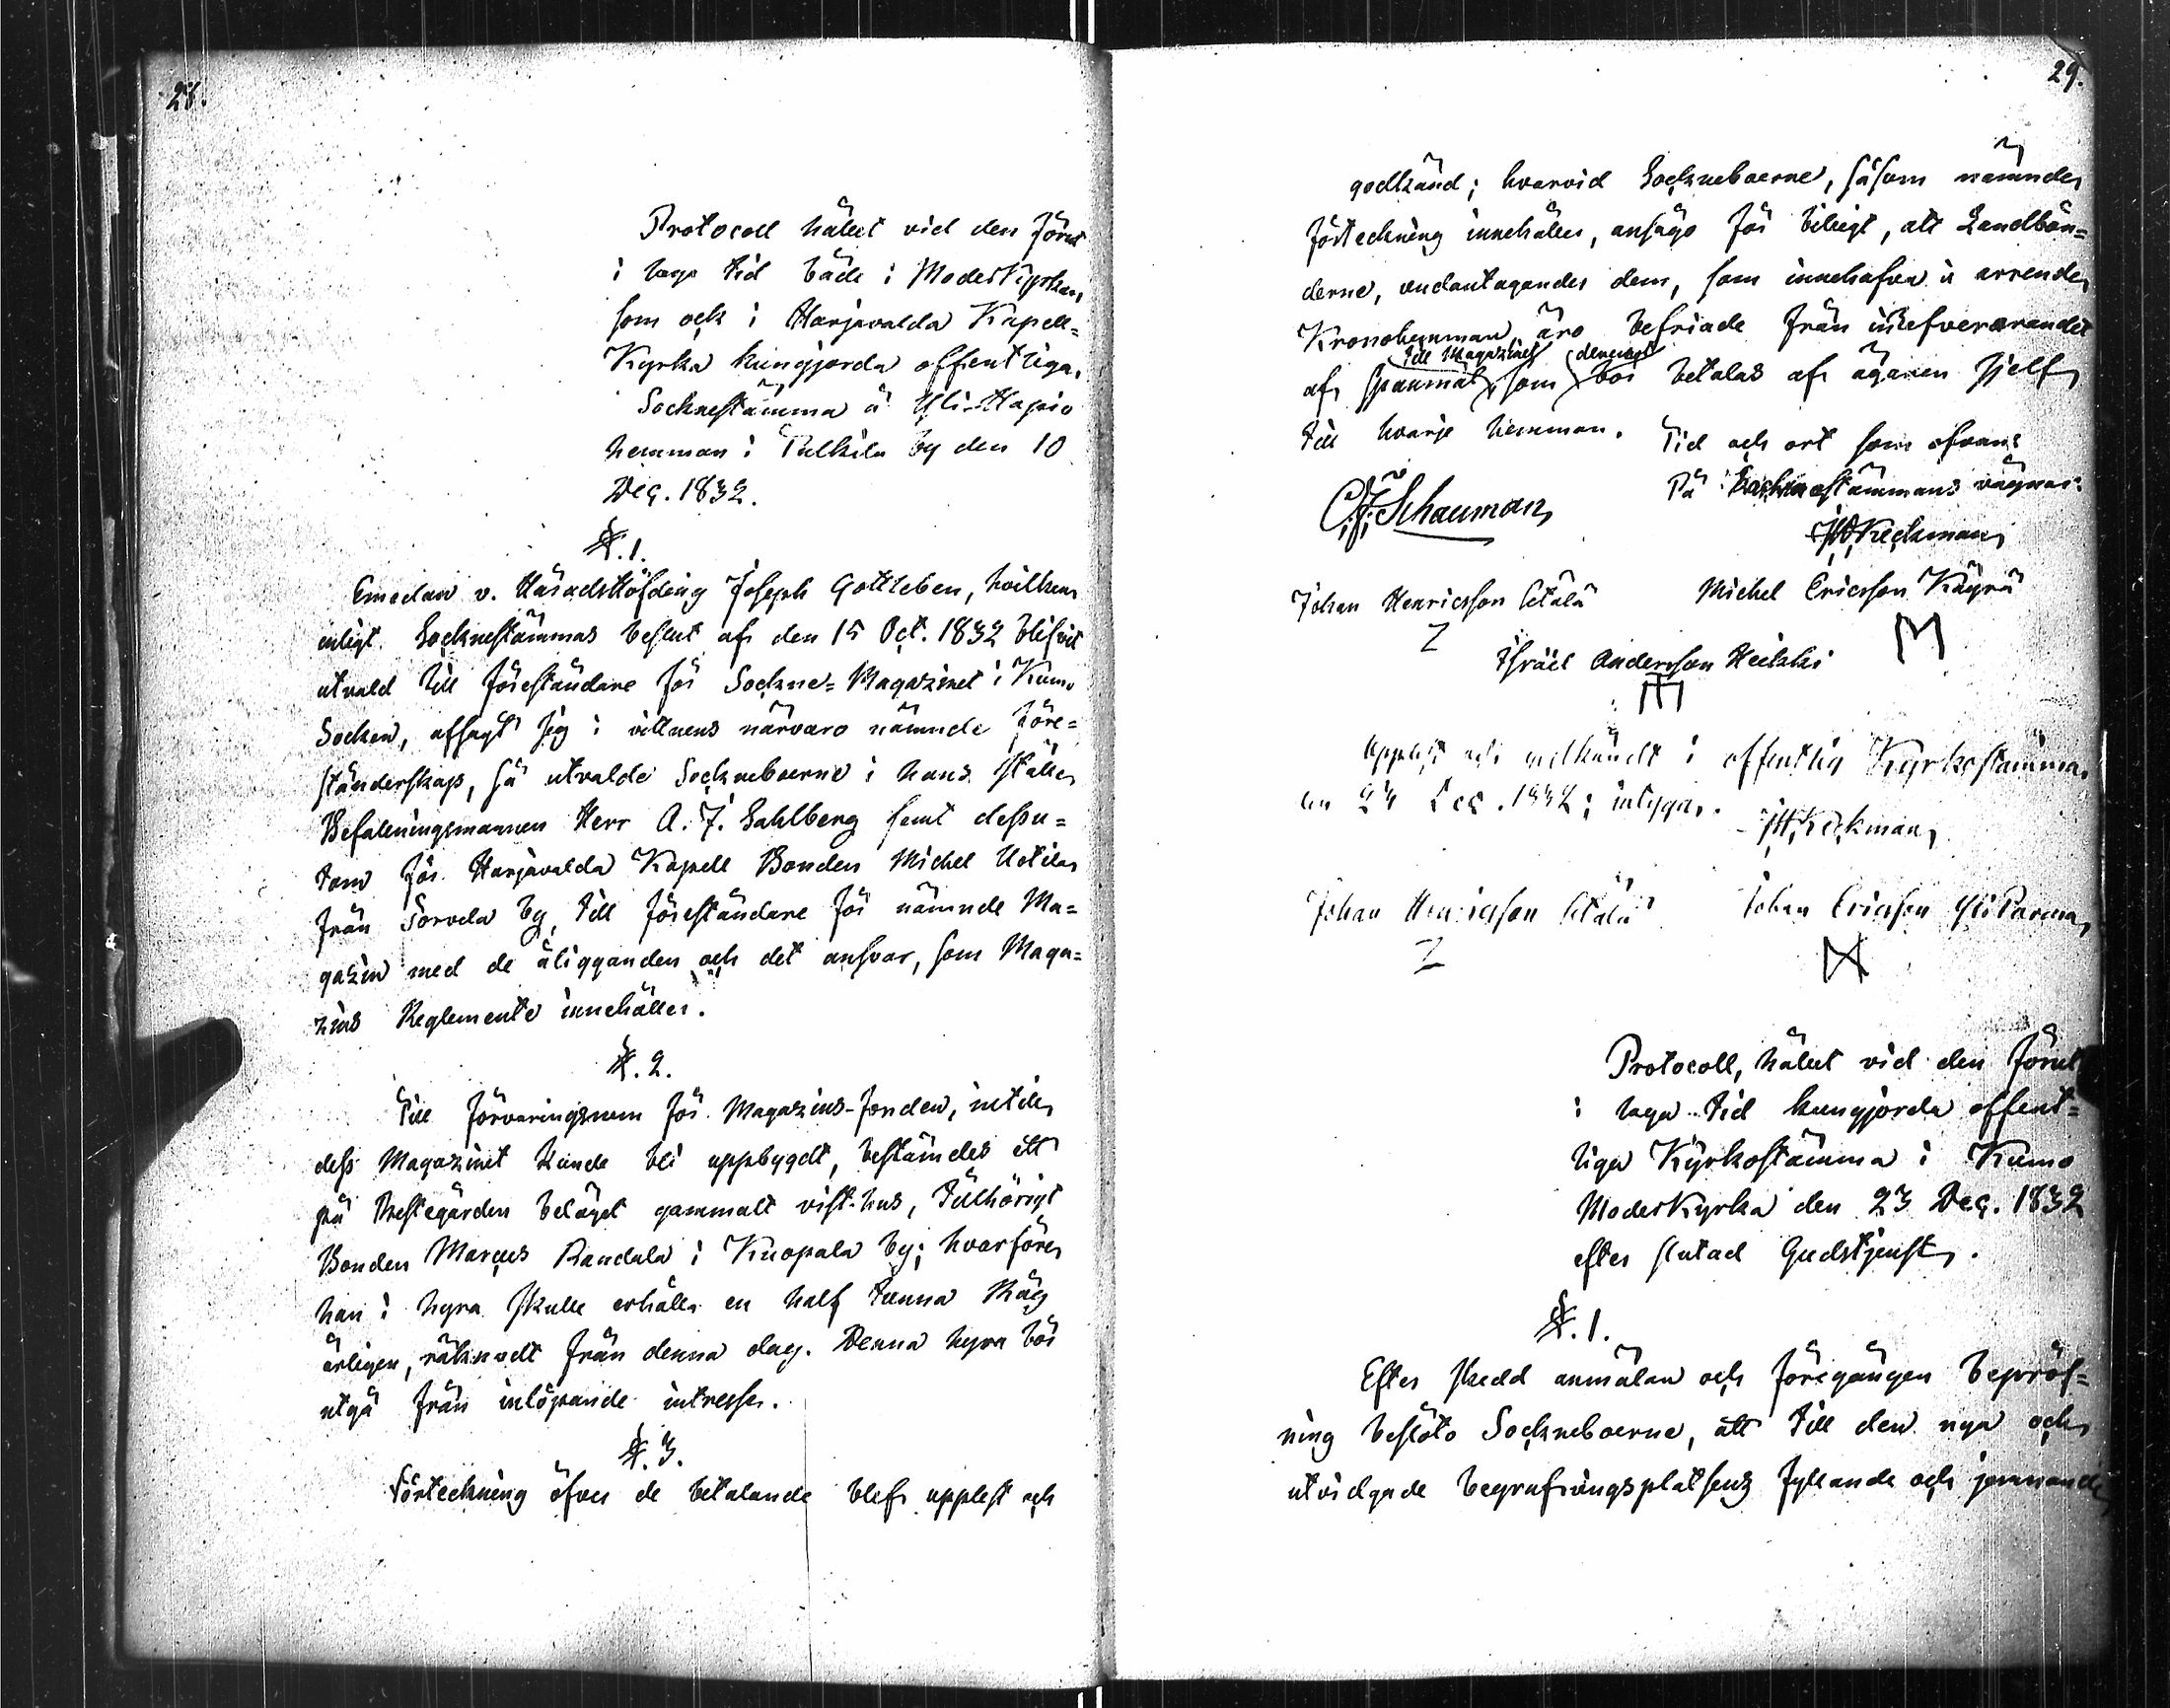 28.
Protocoll hållet vid den förut
i laga tid både i ModerKyrkan,
som och i Harjavalda Kapell=
Kyrka kungjorda offentliga
Sockne­stämma å Yli-Hapio
hemman i Pulkila by den 10
Dec. 1832.
§. 1.
Emedan v. HäradsHöfding Joseph Gottleben, hvilken
enligt Socknestämmas beslut af den 15 Oct. 1832 blifvit
utvald till föreståndare för Sockne=Magazinet i Kumo
Socken, afsagt sig i vittnens närvaro nämnde före=
ståndarskap, så utvalde Sockneboerne i hans ställe
Befalningsmannen Herr A. J. Sahlberg samt dessu=
tom för Harjavalda Kapell Bonden Michel Uotila
från Torvola by, till föreståndare för nämnde Ma=
gazin med de åligganden och det ansvar, som Maga=
zins Reglemente innehåller.
§. 2.
Till förvaringsrum för Magazins-fonden, intill
dess Magazinet kunde bli uppbygdt, bestämdes ett
på Prestegården beläget gammalt vist-hus, tillhörigt
Bonden Marcus Randala i Kuopala by; hvarföre
han i hyra skulle erhålla en half tunna Råg
årligen, räknadt från denna dag. Denna hyra bör
utgå från inlöpande intresse.
§. 3.
Förteckning öfver de betalande blef upplest och
29.
godkänd; hvarvid Sockneboerne, såsom nämnde
förteckning innehåller, ansågo för billigt, att Landbön=
derne, undantagandes dem, som innehafva å arrende
Kronohemman äro befriade från utlefvererandet
till Magazinet denvigt
af spanmål, som bör betalas af ägaren sjelf
till hvarje hemman. Tid och ort som ofvan
På Socknestämmans vägnar:
C. F. Schauman JH Keckman
Johan Henricsson Uotala Michel Ericsson Käyrä
Israel Andersson Heikki
Upplest och vidkändt i offentlig Kyrkostämma
den 23 Dec. 1832; intygar.
JH Keckman
Johan Henricsson Uotala Johan Ericsson YliParma
Protocoll, hållet vid den förut
i laga tid kungjorda offent=
liga Kyrkostämma i Kumo
ModerKyrka den 23 Dec. 1832
efter slutad Gudstjenst.
§. 1.
Efter skedd anmälan och föregången bepröf=
ning beslöto Sockneboerne, att till den nya och
utvidgade begrafningsplatsens fyllande och jemnande